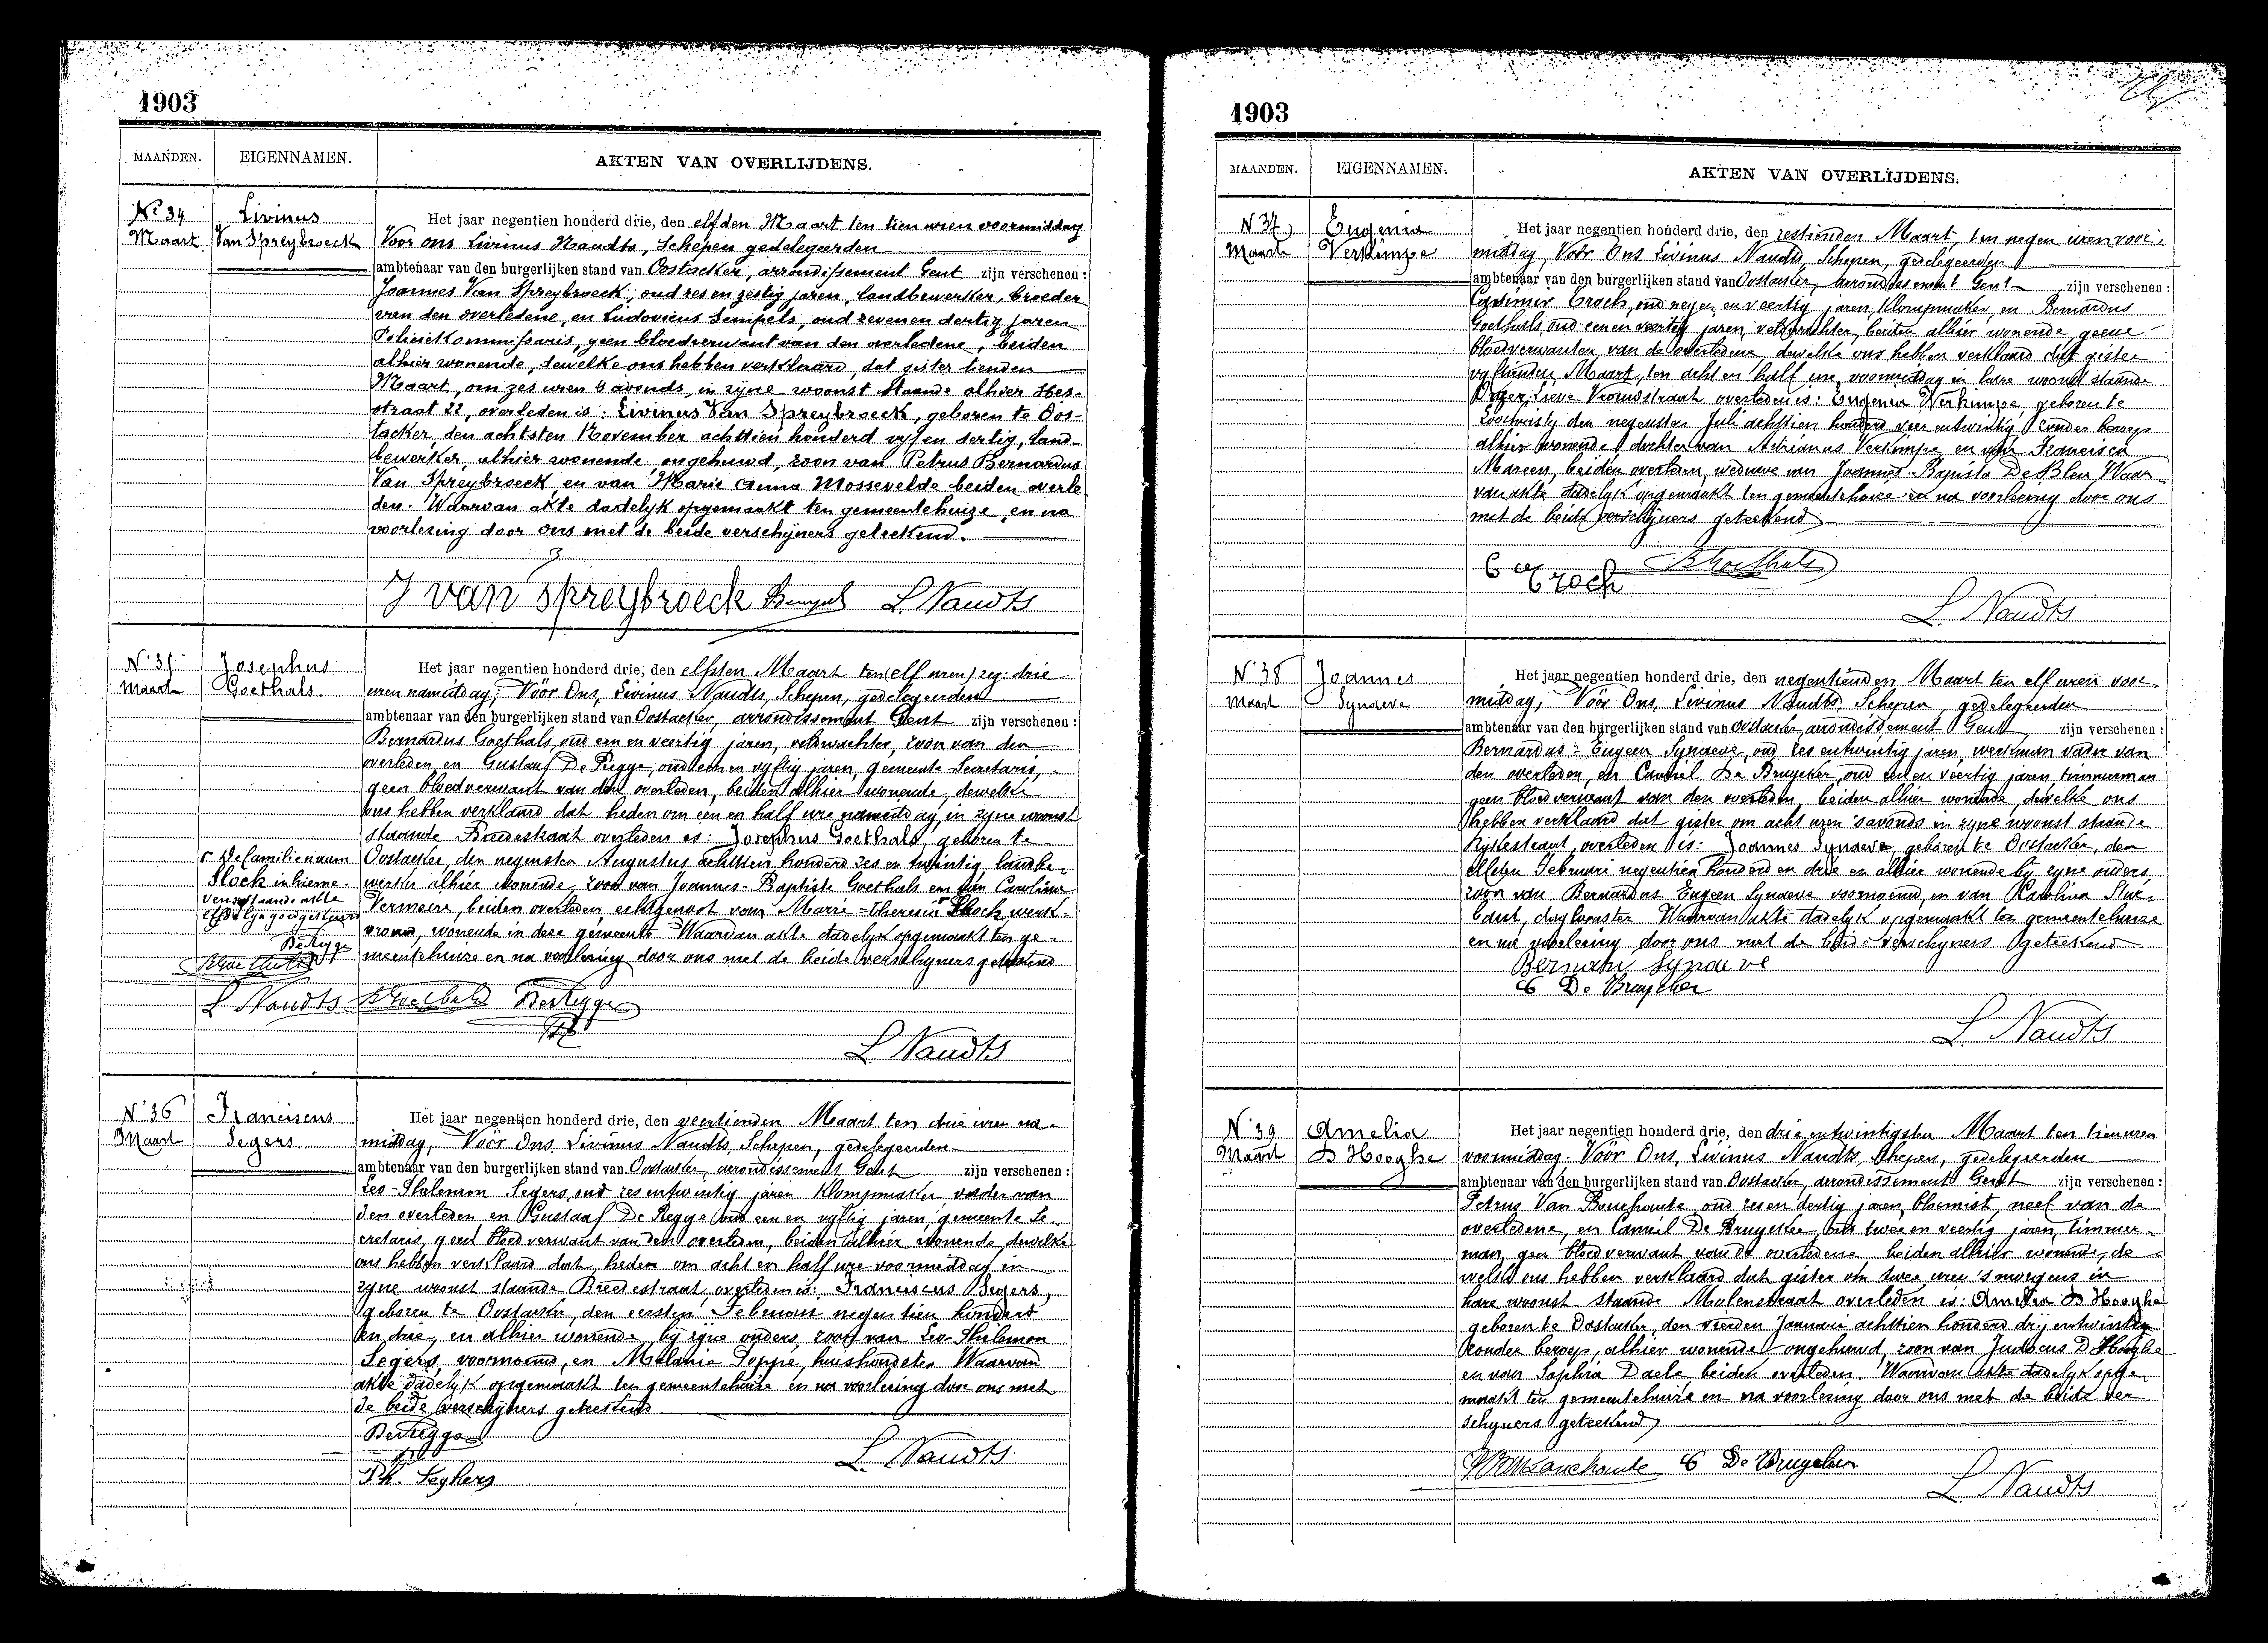 1903
MAANDEN. EIGENNAMEN. AKTEN VAN OVERLIJDENS.
No 34 Maart
Livinus Van Spreybroeck
Het jaar negentien honderd drie, den elfden Maart ten tien uren voormiddag
Voor ons Livinus Naudts, Schepen gedelegeerden
ambtenaar van den burgerlijken stand van Oostacker, arrondissement Gent zijn verschenen :
Joannes Van Spreybroeck, oud zes en zestig jaren, landbewerker, broeder
van den overledene, en Ludovicus Sempels, oud zeven en dertig jaren
Policiekommissaris, geen bloedverwant van den overledene, beiden
alhier wonende, dewelke ons hebben verklaard, dat gister tienden
Maart, om zes uren 's avonds, in zyne woonst staande alhier Hes-
straat 22, overleden is : Livinus Van Spreybroeck, geboren te Oos-
tacker, den achtsten November achttien honderd vyf en dertig, land-
bewerker, alhier wonende, ongehuwd, zoon van Petrus Bernardus
Van Spreybroeck en van Marie Anna Mossevelde beiden overle-
den. Waarvan akte dadelyk opgemaakt ten gemeentehuize, en na
voorlezing door ons met de beide verschijners geteekend.
J van Spreybroeck Sempels L Naudts
N 35 Maart
Josephus Goethals
Het jaar negentien honderd drie, den elfsten Maart ten (elf uren) zeg: drie
uren namiddag, Vóór Ons, Livinus Naudts, Schepen, gedelegeerden
ambtenaar van den burgerlijken stand van Oostacker, arrondissement Gent zijn verschenen :
Bernardus Goethals, oud een en veertig jaren, veldwachter, zoon van den
overleden, en Gustaaf De Regge, oud een en vyftig jaren, gemeente-Secretaris,
geen bloedverwant van den overleden, beiden alhier wonende, dewelke
ons hebben verklaard dat heden om een en half ure namiddag, in zyne woonst
staande Breedestraat overleden is: Josephus Goethals, geboren te
Oostacker, den negensten Augustus achttien honderd zes en twintig, landbe-
werker alhier wonende, zoon van Joannes-Baptiste Goethals en van Carolina
Vermeire, beiden overleden, echtgenoot van Marie-Theresia Plock werk-
vrouw, wonende in deze gemeente. Waarvan akte dadelyk opgemaakt ten ge-
meentehuize en na voorlezing door ons met de beide verschyners geteekend
De familienaam
Plock in hierne-
venstaande akte
DeRegge
BGoethals
L Naudts BGoethals DeRegge
L Naudts
N 36 Maart
Franciscus Segers
Het jaar negentien honderd drie, den veertienden Maart ten drie uren na-
middag, Vóór Ons Livinus Naudts, Schepen, gedelegeerden
ambtenaar van den burgerlijken stand van Oostacker, arrondissement Gent zijn verschenen :
Leo-Philemon Segers, oud zes en twintig jaren Klompmaker vader van
den overleden en Gustaaf De Regge oud een en vyftig jaren, gemeente Se-
cretaris, geen bloedverwant van den overleden, beiden alhier wonende dewelke
ons hebben verklaard dat heden om acht en half ure voormiddag in
zyne woonst staande Breedestraat, overleden is: Franciscus Segers,
geboren te Oostacker, den eersten Februari negentien honderd
en drie, en alhier wonende by zyne ouders, zoon van Leo-Philemon
Segers, voornoemd, en Melanie Poppe, huishoudster. Waarvan
akte dadelyk opgemaakt ten gemeentehuize en na voorlezing door ons met
de beide verschijners geteekend
DeRegge
Ph. Seghers
L Naudts
1903
MAANDEN. EIGENNAMEN. AKTEN VAN OVERLIJDENS.
N 37 Maart
Eugenia Verkimpe
Het jaar negentien honderd drie, den zestienden Maart, ten negen uren voor-
middag, Vóór Ons Livinus Naudts, Schepen, gedelegeerden
ambtenaar van den burgerlijken stand van Oostacker, arrondissement Gent zijn verschenen :
Casimir Croch, oud negen en veertig jaren, klompmaker, en Bernardus
Goethals, oud een en veertig jaren, veldwachter, beiden alhier wonende geene
bloedverwanten van de overledene dewelke ons hebben verklaard dat gister
vyftienden Maart, ten acht en half ure voormiddag in hare woonst staande
O. Lieve Vrouwstraat overleden is: Eugenia Verkimpe, geboren te
Loochristy den negensten Juli achttien honderd vier en twintig zonder beroep
alhier wonende, dochter van Adrianus Verkimpe, en van Francisca
Mareen, beiden overleden, weduwe van Joannes-Baptista De Bleu. Waar-
van akte dadelyk opgemaakt ten gemeentehuize en na voorlezing door ons
met de beide verschijners geteekend
Croch BGoethals
L Naudts
N 38 Maart
Joannes Synaeve
Het jaar negentien honderd drie, den negentienden Maart ten elf uren voor-
middag, Vóór Ons, Livinus Naudts, Schepen, gedelegeerden
ambtenaar van den burgerlijken stand van Oostacker, arrondissement Gent zijn verschenen :
Bernardus-Eugeen Synaeve, oud zes en twintig jaren, werkman vader van
den overleden, en Camiel De Bruycker, oud twee en veertig jaren timmerman
geen bloedverwant van den overleden, beiden alhier wonende, dewelke ons
hebben verklaard dat gister om acht uren 's avonds in zyne woonst staande
overleden is: Joannes Synaeve, geboren te Oostacker, den
elfsten Februari negentien honderd en drie en alhier wonende by zyne ouders,
zoon van Bernardus Eugeen Synaeve voornoemd, en van Karolina
Waarvan akte dadelyk opgemaakt ten gemeentehuize
en na voorlezing door ons met de beide verschyners geteekend
Bernard Synaeve
C De Bruycker
L Naudts
N 39 Maart
Amelia D Hooghe
Het jaar negentien honderd drie, den drie en twintigsten Maart ten tien uren
voormiddag. Vóór Ons, Livinus Naudts, Schepen, gedelegeerden
ambtenaar van den burgerlijken stand van Oostacker, arrondissement Gent zijn verschenen :
Petrus Van Bouchaute oud zes en dertig jaren, bloemist, neef van de
overledene, en Camiel De Bruycker, oud twee en veertig jaren, timmer-
man, geen bloedverwant van de overledene beiden alhier wonende, de-
welke ons hebben verklaard dat gister om twee uren 's morgens in
hare woonst staande Molenstraat overleden is: Amelia D Hooghe
geboren te Oostacker, den vierden Januari achttien honderd drij en twintig
zonder beroep, alhier wonende ongehuwd, zoon van Judocus D'Hooghe
en van Sophia Daele, beiden overleden. Waarvan akte dadelyk opge-
maakt ten gemeentehuize en na voorlezing door ons met de beide ver-
schyners geteekend
C De Bruycker
L Naudts